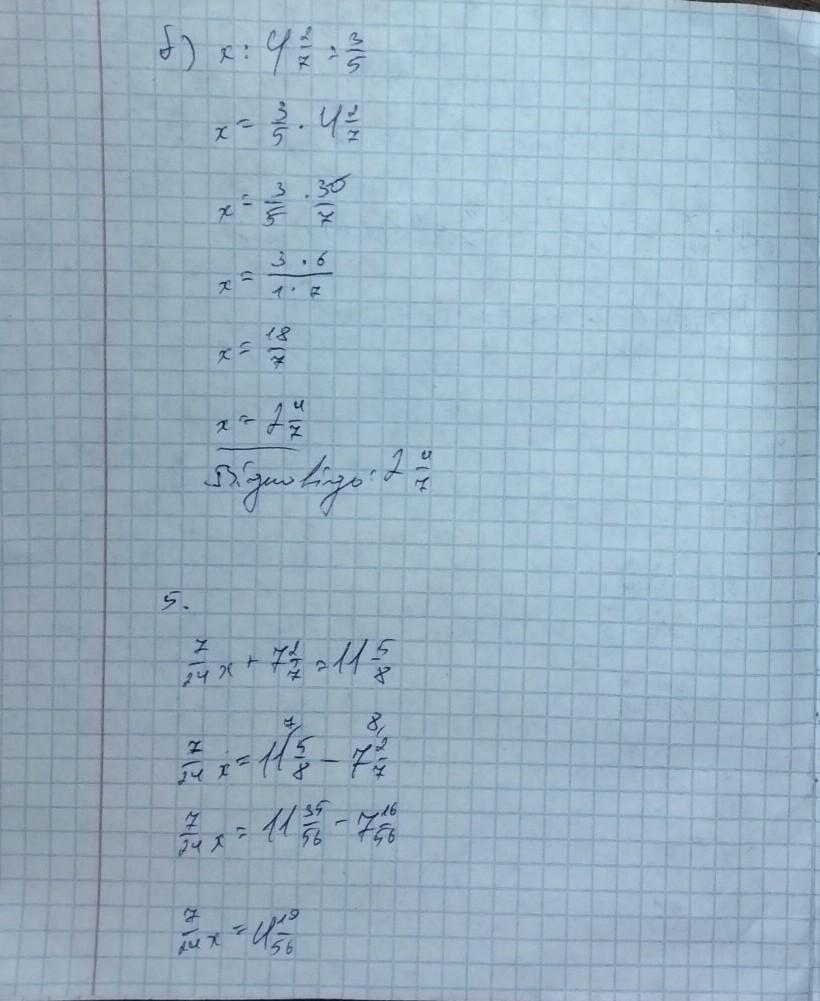 б) x : 4 2/7 = 3/5
x = 3/5 · 4 2/7
x = 3/5 · 30/7
x = 3 · 6 / 1 · 7
x = 18/7
x = 2 4/7
Відповідь: 2 4/7
5.
7/24 x + 7 2/7 = 11 5/8
7/24 x = 11 5/8 (7 - 7 2/7 (8
7/24 x = 11 35/56 - 7 16/56
7/24 x = 4 19/56